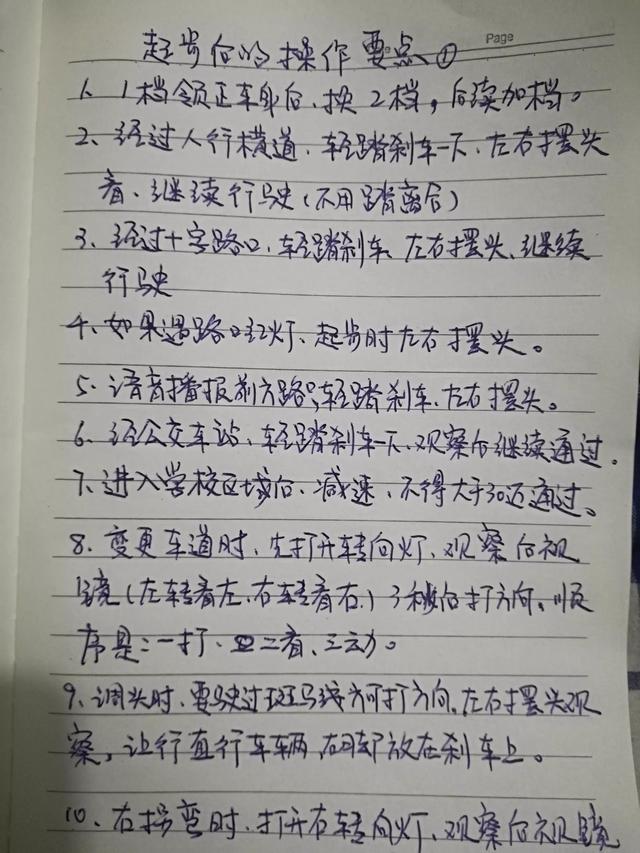 Page
起步后的操作要点①
1、1档领正车身后、换2档，后续加档。
2、经过人行横道、轻踏刹车一下、左右摆头
看、继续行驶(不用踏离合)
3、经过十字路口、轻踏刹车、左右摆头、继续
行驶
4、如果遇路口红灯、起步时左右摆头。
5、语音播报前方路口,轻踏刹车、左右摆头。
6、经公交车站、轻踏刹车一下、观察后继续通过.
7、进入学校区域后、减速、不得大于30迈通过。
8、变更车道时、先打开转向灯、观察后视
镜(左转看左、右转看右.)3秒后打方向。顺
序是:一打、二看、三动。
9、调头时、要驶过斑马线方可打方向.左右摆头观
察，让行直行车辆,右脚放在刹车上。
10、右拐弯时、打开右转向灯、观察后视镜